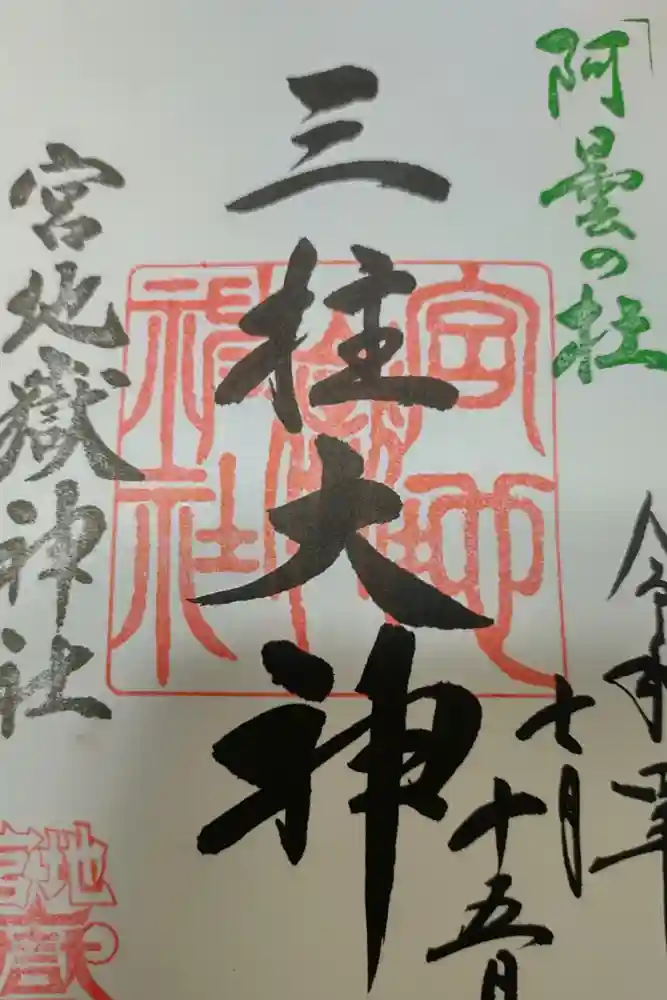 「阿曇の杜
令和四年
七月十五日
三柱大神
宮地嶽神社
宮地嶽神社
宮地嶽